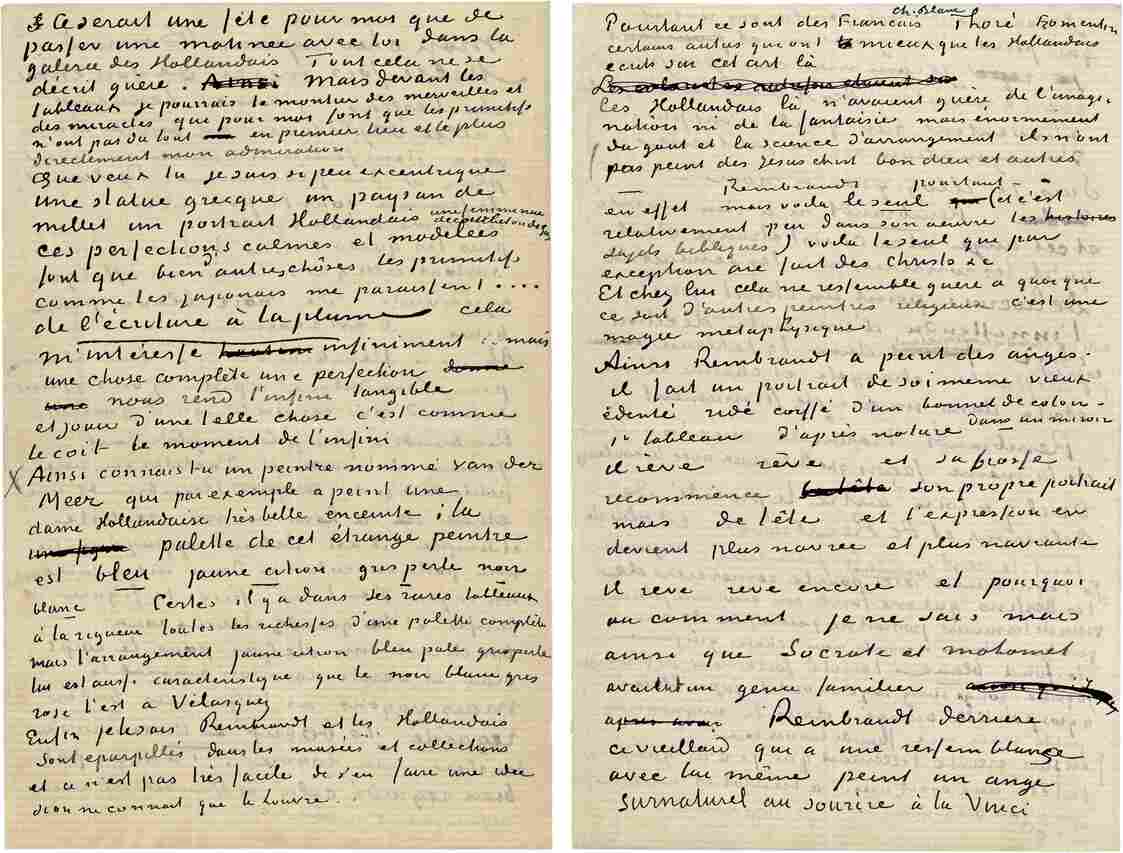 Ce serait une fête pour moi que de
passer une matinee avec toi dans la
galerie des Hollandais Tout cela ne se
décrit guère. Ainsi Mais devant les
tableaux je pourrais te montrer des merveilles et
des miracles que pour moi font que les primitifs
n'ont pas du tout en premier lieu et le plus
directement mon admiration
Que veux tu je suis si peu excentrique
une statue grecque un paysan de
millet un portrait Hollandais une femme nue
de Courbet ou de Degas
ces perfections calmes et modelées
font que bien autres chôses les primitifs
comme les japonais me paraissent....
de l'écriture à la plume cela
m'intéresse infiniment mais
une chose complète une perfection donne
une nous rend l'infini tangible
et jouir d'une telle chose c'est comme
le coit le moment de l'infini
X Ainsi connais tu un peintre nommé van der
Meer qui par exemple a peint une
dame Hollandaise très belle enceinte; la
palette de cet étrange peintre
est bleu jaune citron gris perle noir
blanc Certes il y a dans ses rares tableaux
à la rigueur toutes les richesses d'une palette complète
mais l'arrangement jaune citron bleu pale gris perle
lui est aussi caracteristique que le noir blanc gris
rose l'est à Vélasquez
Enfin je le sais Rembrandt et les Hollandais
sont eparpillés dans les musées et collections
et ce n'est pas très facile de s'en faire une idée
si on ne connait que le Louvre.
Ch. Blanc
Pourtant ce sont des Francais Thoré Fromentin
certains autres qui ont mieux que les Hollandais
ecrit sur cet art là
Ces Hollandais là n'avaient guère de l'imagi-
nation ni de la fantaisie mais énormement
du gout et la science d'arrangement ils n'ont
pas peint des Jesus christ bon dieu et autres
Rembrandt pourtant –
en effet mais voila le seul (et c'est
relativement peu dans son oeuvre les histoires
sujets bibliques) voila le seul que par
exception aie fait des Christs &c
Et chez lui cela ne ressemble guère à quoi que
ce soit d'autres peintres religieux c'est une
magie metaphysique
Ainsi Rembrandt a peint des anges.
il fait un portrait de soi meme vieux
édenté ridé coiffé d'un bonnet de coton –
1° tableau d'après nature dans un miroir
il rêve rêve et sa brosse
recommence la tête son propre portrait
mais de tête et l'expression en
devient plus navrée et plus navrante
il reve reve encore et pourquoi
ou comment je ne sais mais
ainsi que Socrate et mahomet
avaient un genie familier
Rembrandt derriere
ce vieillard qui a une ressemblance
avec lui même peint un ange
surnaturel au sourire à la Vinci